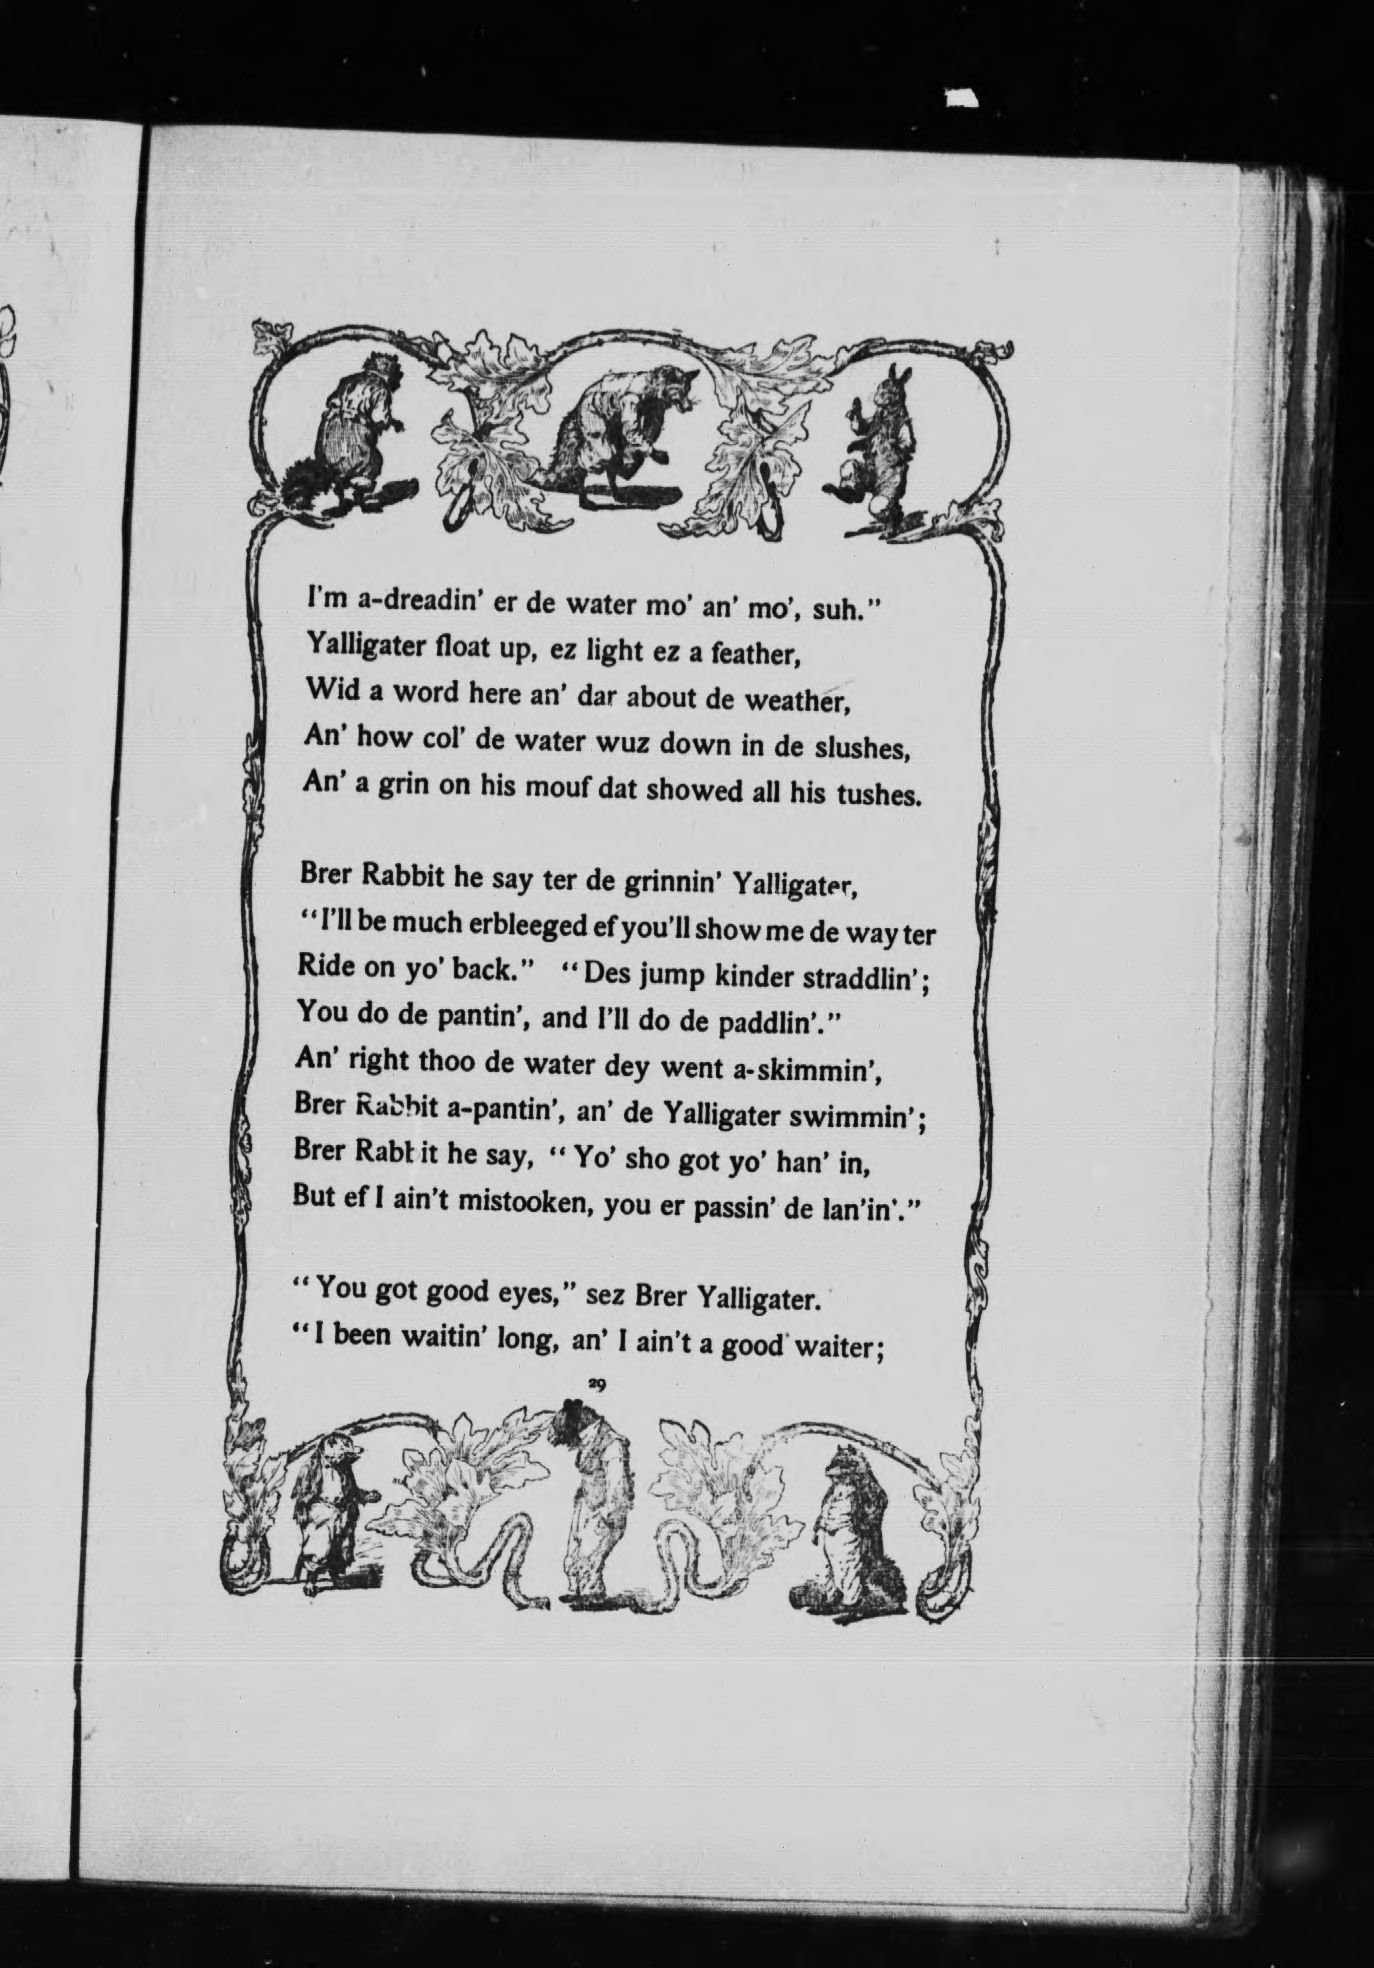 I'm a-dreadin' er de water mo' an' mo', suh."
Yalligater float up, ez light ez a feather,
Wid a word here an' dar about de weather,
An' how col' de water wuz down in de slushes,
An' a grin on his mouf dat showed all his tushes.
Brer Rabbit he say ter de grinnin' Yalligater,
"I'll be much erbleeged ef you'll show me de way ter
Ride on yo' back." "Des jump kinder straddlin';
You do de pantin', and I'll do de paddlin'."
An' right thoo de water dey went a-skimmin',
Brer Rabbit a-pantin', an' de Yalligater swimmin';
Brer Rabbit he say, "Yo' sho got yo' han' in,
But ef I ain't mistooken, you er passin' de lan'in'."
"You got good eyes," sez Brer Yalligater.
"I been waitin' long, an' I ain't a good waiter;
29